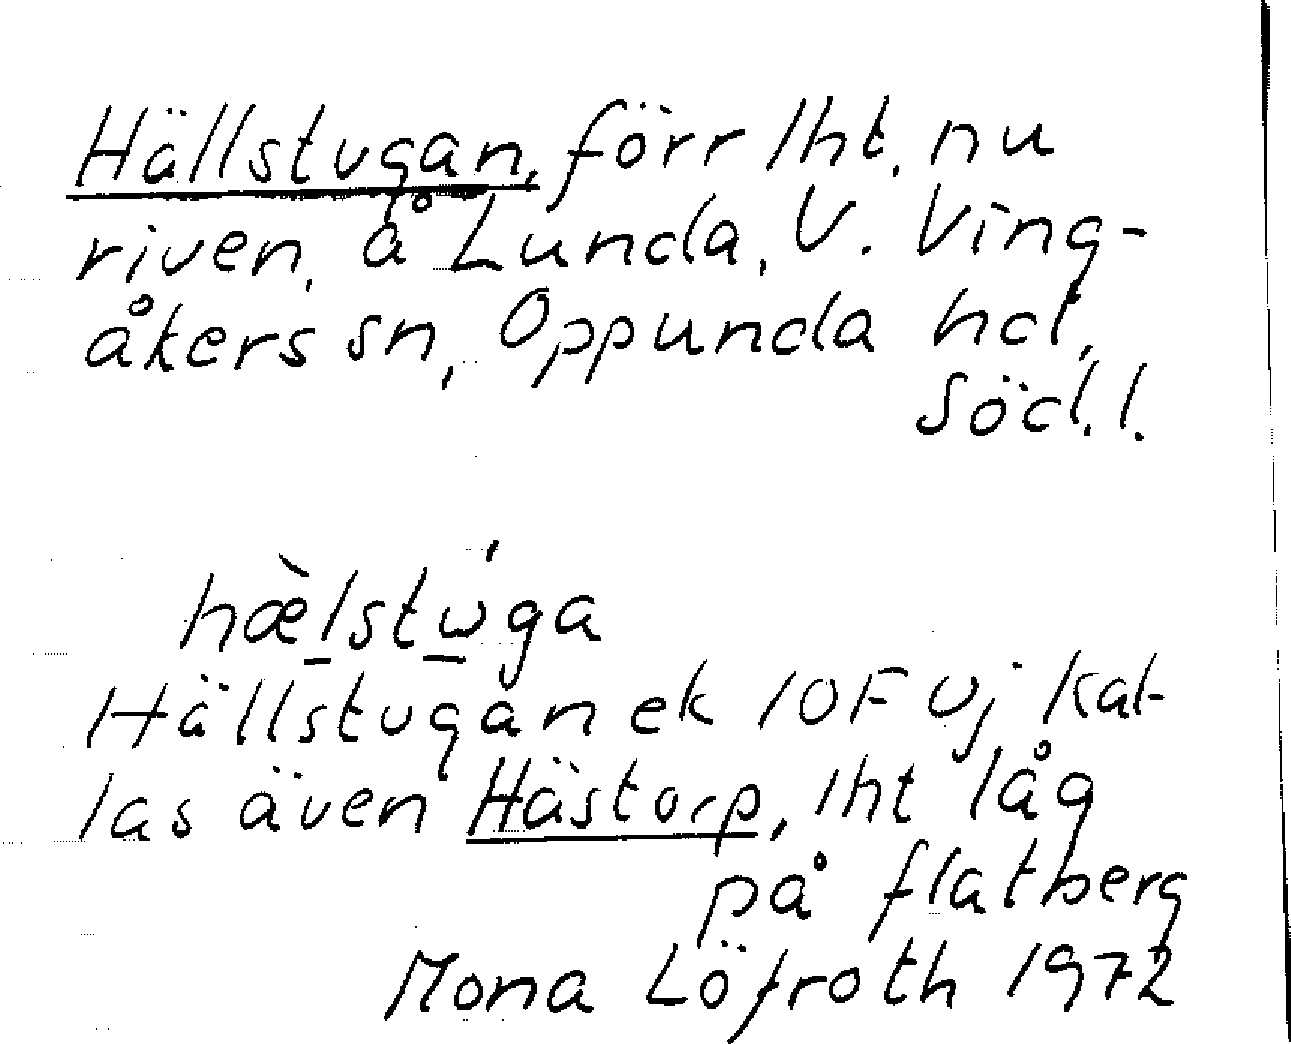 Hällstugan, förr lht, nu
riven, å Lunda, V. Ving-
åkers sn, Oppunda hd,
Söd. l.
hæ̀lstω´ga
Hällstugan ek 10F Vj Kal-
las även Hästorp, lht låg
på flatberg
Mona Löfroth 1972